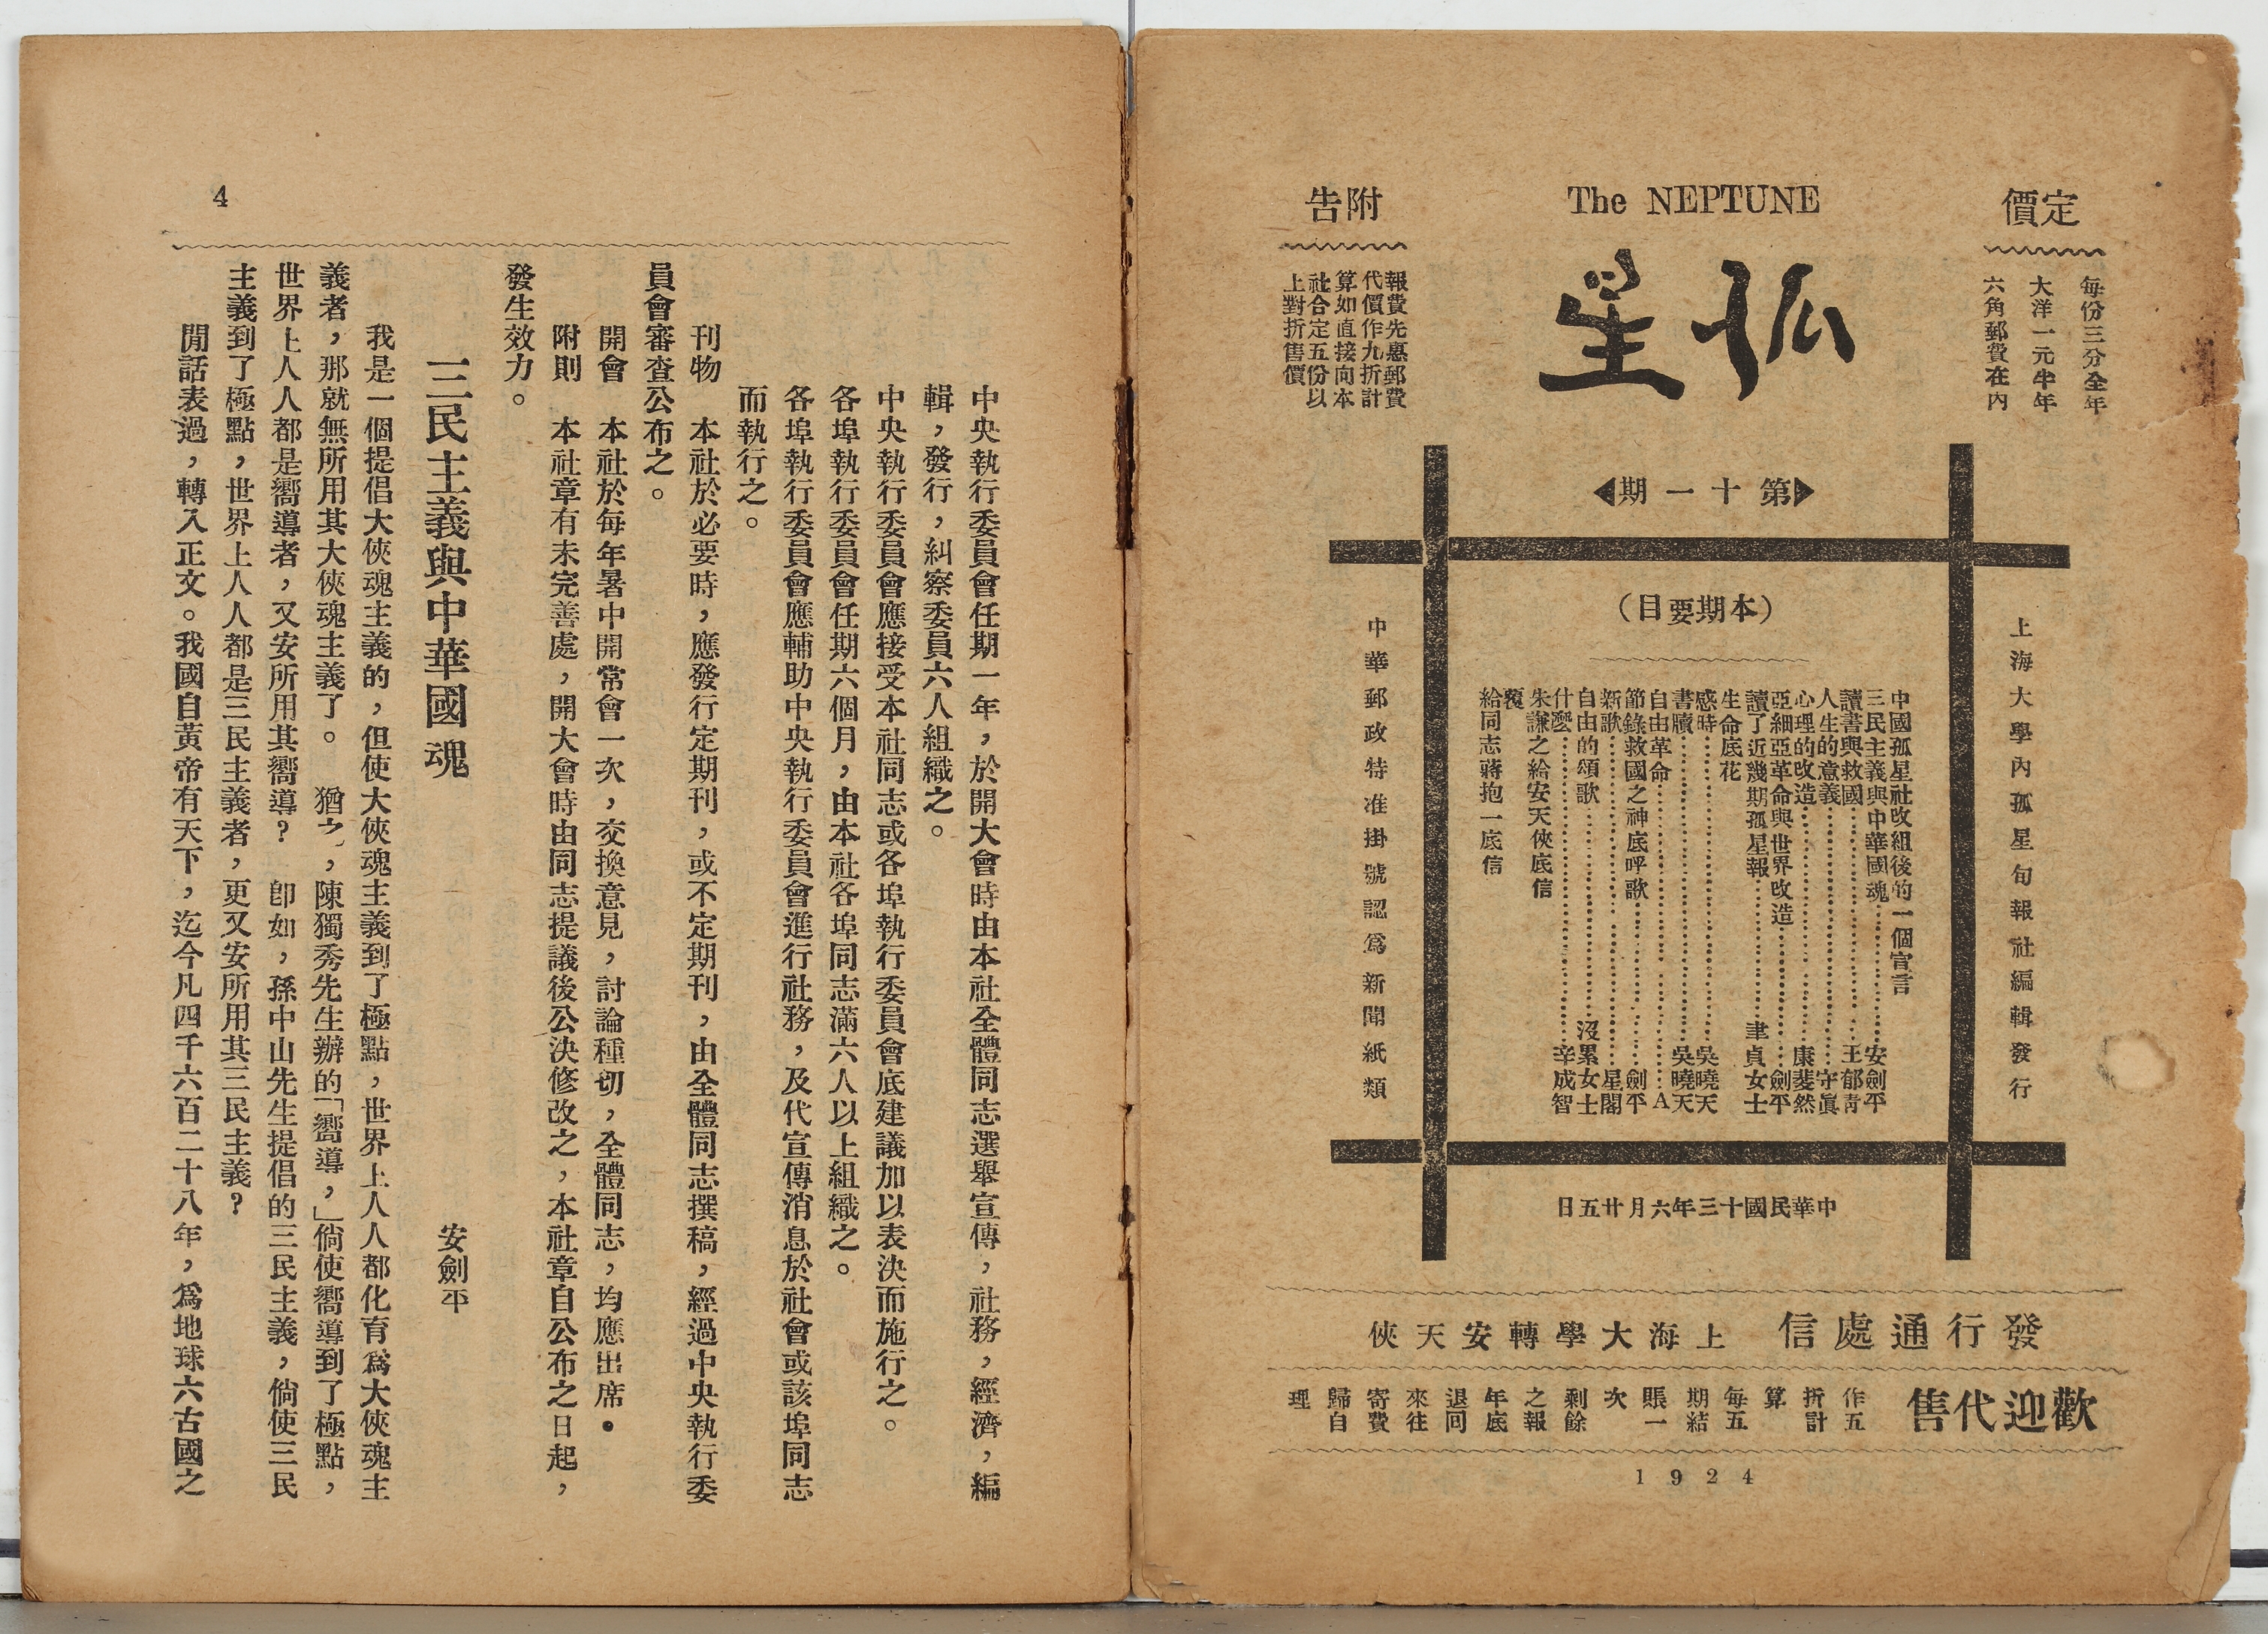 定價
每份三分全年
大洋一元半年
六角郵費在內
The NEPTUNE
孤星
附告
報費先惠郵費
代價作九折計
算如直接向本
社合定五份以
上對折售價
第十一期
(本期要目)
上海大學內孤星旬報社編輯發行
中國孤星社改組後的一個宣言
三民主義與中華國魂……安劍平
讀書與救國……王郁青
人生的意義……守眞
心理的改造……康斐然
亞細亞革命與世界改造……劍平
讀了近幾期孤星報……聿貞女士
生命底花
感時……吳曉天
書牘……吳曉天
自由革命……A
節錄救國之神底呼歌……劍平
新歌……星閣
自由的頌歌……沒累女士
什麼……辛成智
朱謙之給安天俠底信
覆
給同志蔣抱一底信
中華郵政特准掛號認爲新聞紙類
中華民國十三年六月廿五日
發行通信處 上海大學轉安天俠
歡迎代售 作五折計算每五期結賬一次剩餘之報年底退回來往寄費歸自理
1924
4
中央執行委員會任期一年,於開大會時由本社全體同志選舉宣傳,社務,經濟,編
輯,發行,糾察委員六人組織之。
中央執行委員會應接受本社同志或各埠執行委員會底建議加以表決而施行之。
各埠執行委員會任期六個月,由本社各埠同志滿六人以上組織之。
各埠執行委員會應輔助中央執行委員會進行社務,及代宣傳消息於社會或該埠同志
而執行之。
刊物 本社於必要時,應發行定期刊,或不定期刊,由全體同志撰稿,經過中央執行委
員會審查公布之。
開會 本社於每年暑中開常會一次,交換意見,討論種切,全體同志,均應出席•
附則 本社章有未完善處,開大會時由同志提議後公決修改之,本社章自公布之日起,
發生效力。
三民主義與中華國魂
安劍平
我是一個提倡大俠魂主義的,但使大俠魂主義到了極點,世界上人人都化育爲大俠魂主
義者,那就無所用其大俠魂主義了。 猶之,陳獨秀先生辦的「嚮導,」倘使嚮導到了極點,
世界上人人都是嚮導者,又安所用其嚮導? 卽如,孫中山先生提倡的三民主義,倘使三民
主義到了極點,世界上人人都是三民主義者,更又安所用其三民主義?
閒話表過,轉入正文。我國自黃帝有天下,迄今凡四千六百二十八年,爲地球六古國之